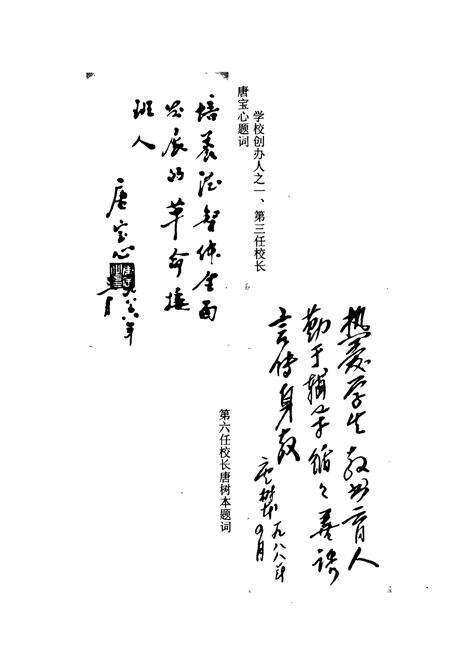 学校创办人之一、第三任校长
唐宝心题词
培养德智体全面
发展的革命接
班人
唐宝心
热爱学生教书育人
勤于辅导循々善诱
言传身教
唐树本一九八八年
9月
第六任校长唐树本题词